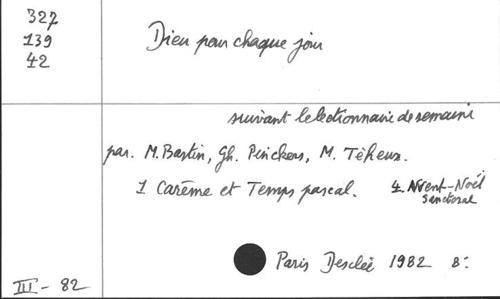 327
139
42
Dieu pour chaque jour
suivant le lectionnaire de semaine
par. M. Bastin, Gh. Pinckers, M. Teheux.
1 Carême et Temps pascal.
4. Avent-Noël
Sanctoral
Paris Desclée 1982 8:
III - 82